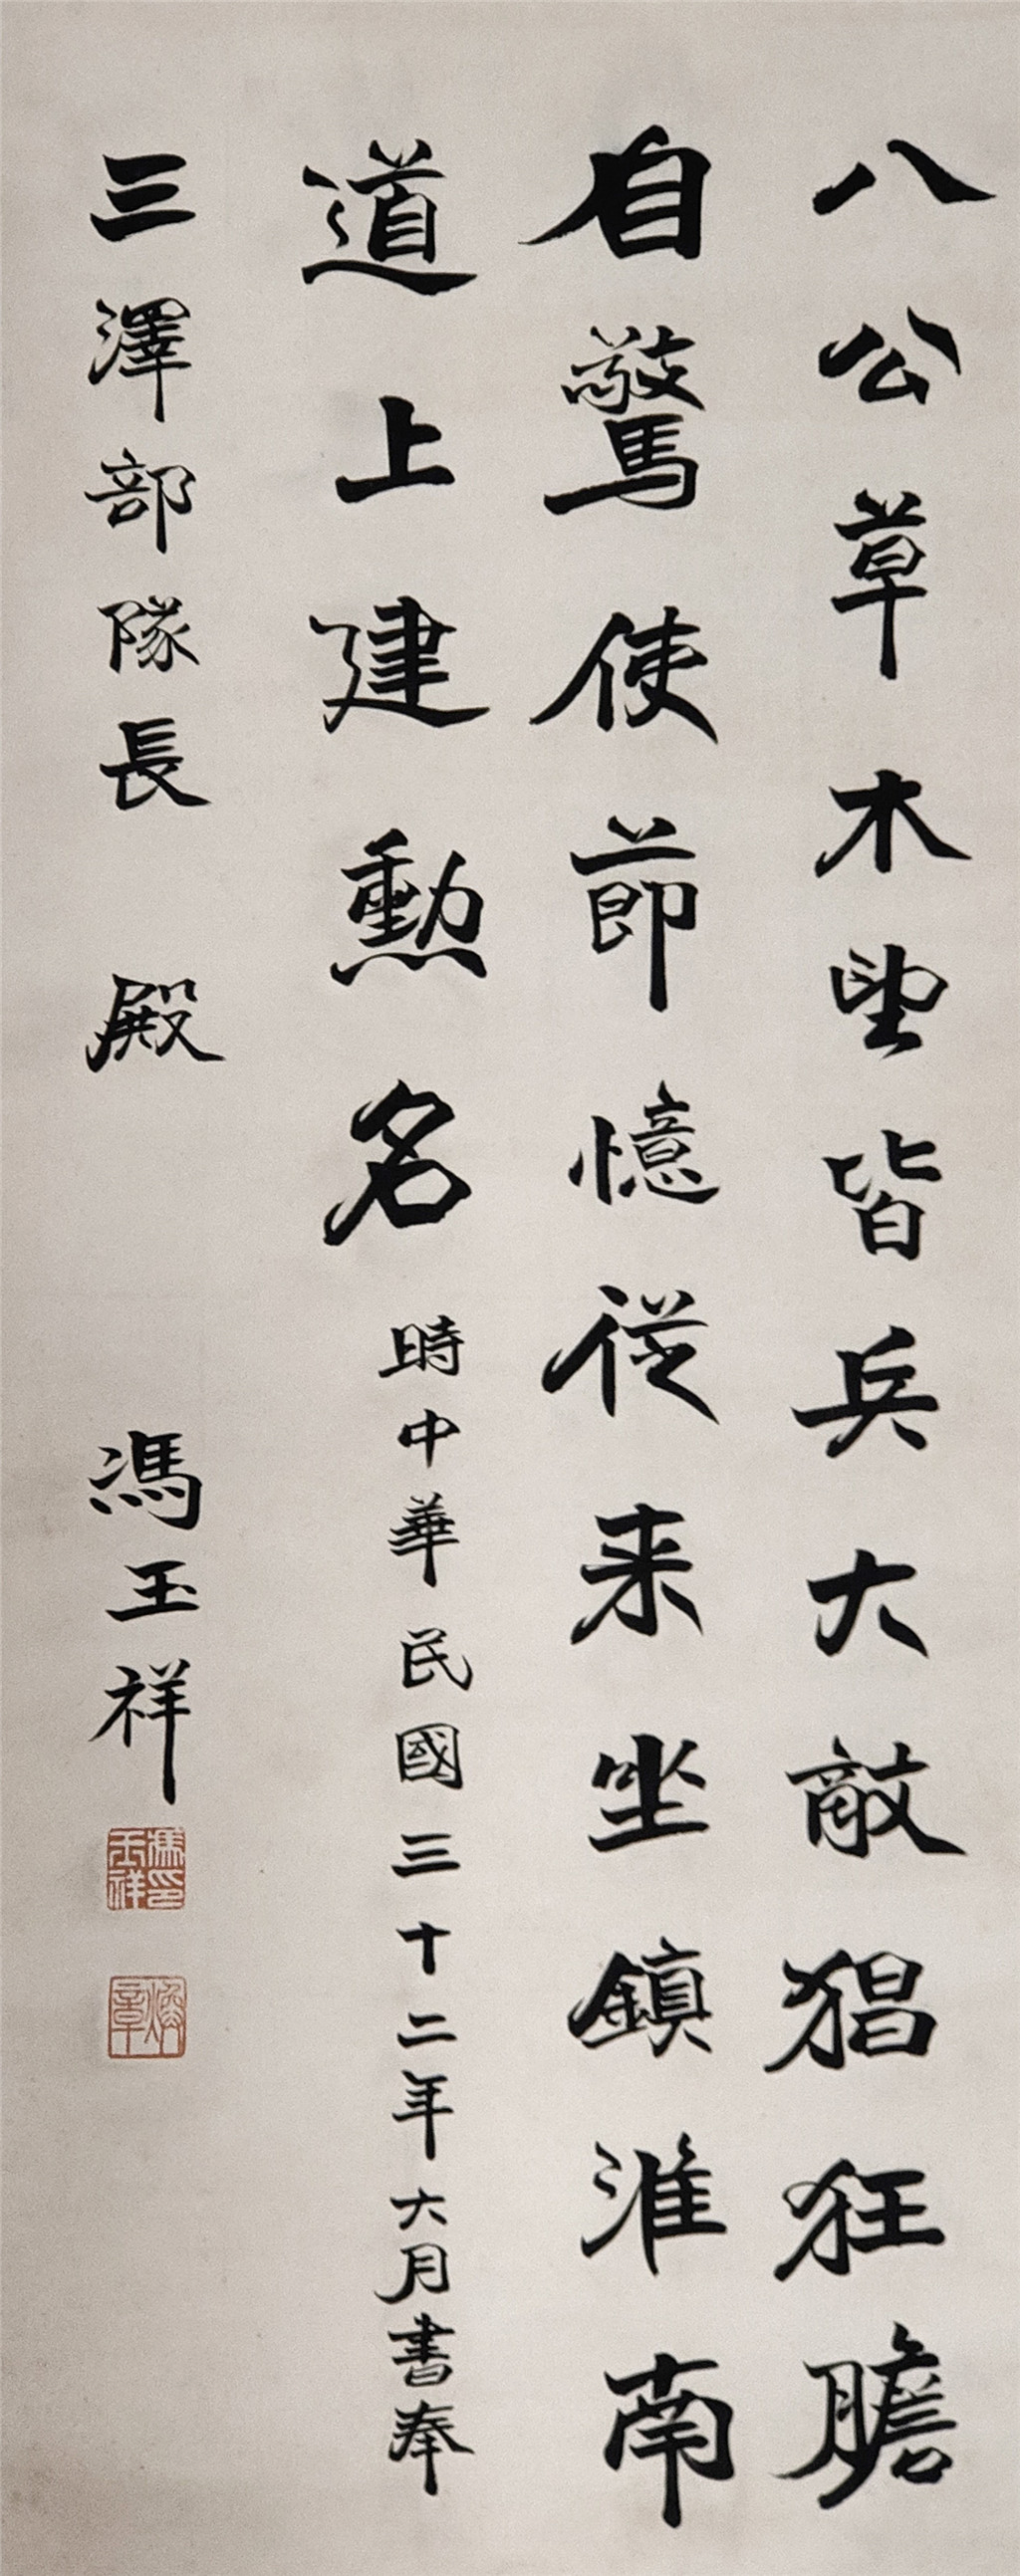 八公草木望皆兵大敵猖狂膽
自驚使節憶從来坐鎮淮南
道上建勳名
時中華民國三十二年六月書奉
三澤部隊長 殿
馮玉祥
馮玉祥印
煥章